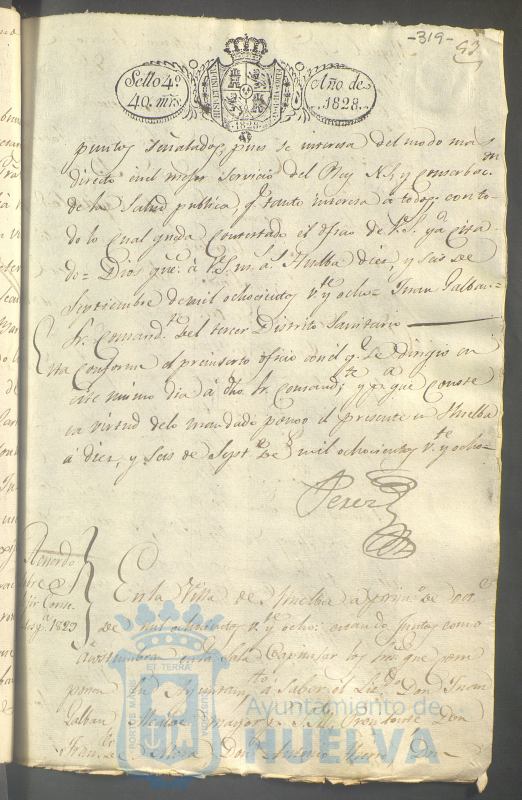 -319-
Sello 4º
40. mrs
HISPANIARUM
1828
Año de
1828.
puntos señalados, pues se interesa del modo mas
directo en el mejor servicio del Rey N.S. y conservon
de la Salud publica, q.e tanto interesa a todos, con to-
do lo cual queda contestado el oficio de V.S. ya cita-
do = Dios gue. á V.S. m. a.s Huelba diez, y seis de
Septiembre de mil ochocientos v.te y ocho = Juan Galban =
Sr. Comand.te del tercer Distrito Sanitario
Esta conforme al preinserto oficio con el q.e se dirigio en
este mismo dia á dho. Sr. Comand.te y p.a que conste
en virtud de lo mandado pongo el presente en Huelba
á diez, y seis de Sept.e de mil ochocientos v.te y ocho =
Perez
Acuerdo
p.a 1829
En la Villa de Huelba a prim.o de Oct.e
de mil ochocientos v.te y ocho: estando juntos como
acostumbran en su Sala Capitular los Sres. que com-
ponen su Ayuntam.to á saber el Lic.do Don Juan
Galban Alcalde mayor p.r S.M. Presidente Don
Fran.co de Don Antonio Don
PORTUS MARIS ET TERRAE CUSTODIA
Ayuntamiento de
HUELVA